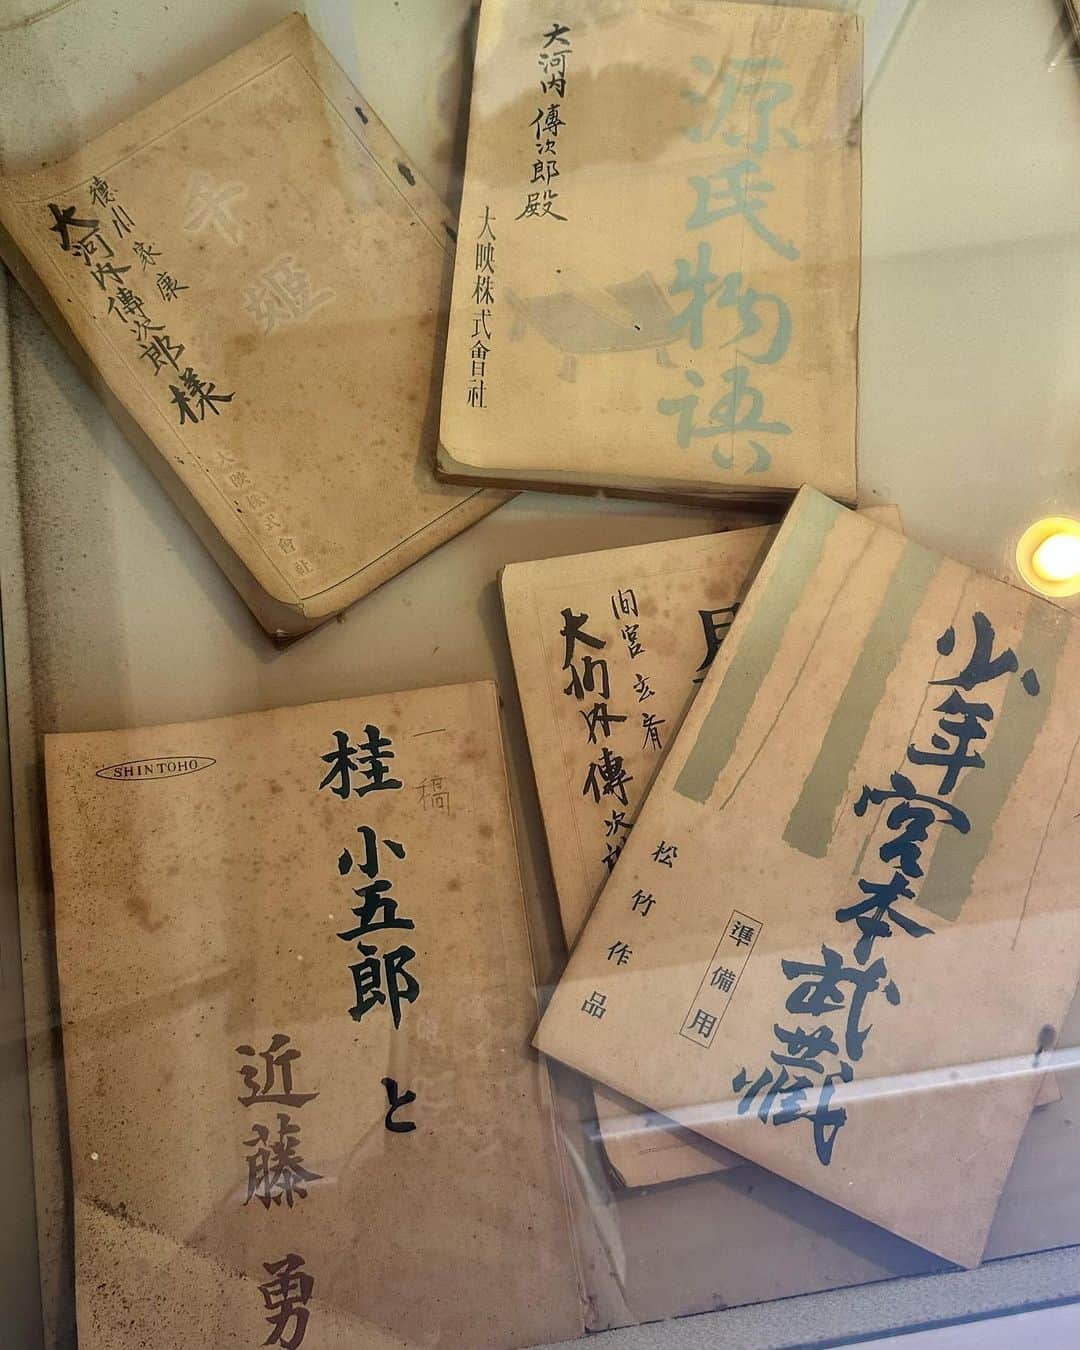 千姫
徳川家康
大河内傳次郎様
大映株式會社
源氏物語
大河内傳次郎殿
大映株式會社
間宮玄斎
大河内傳次郎
少年宮本武藏
準備用
松竹作品
一稿
桂小五郎と
近藤勇
SHINTOHO